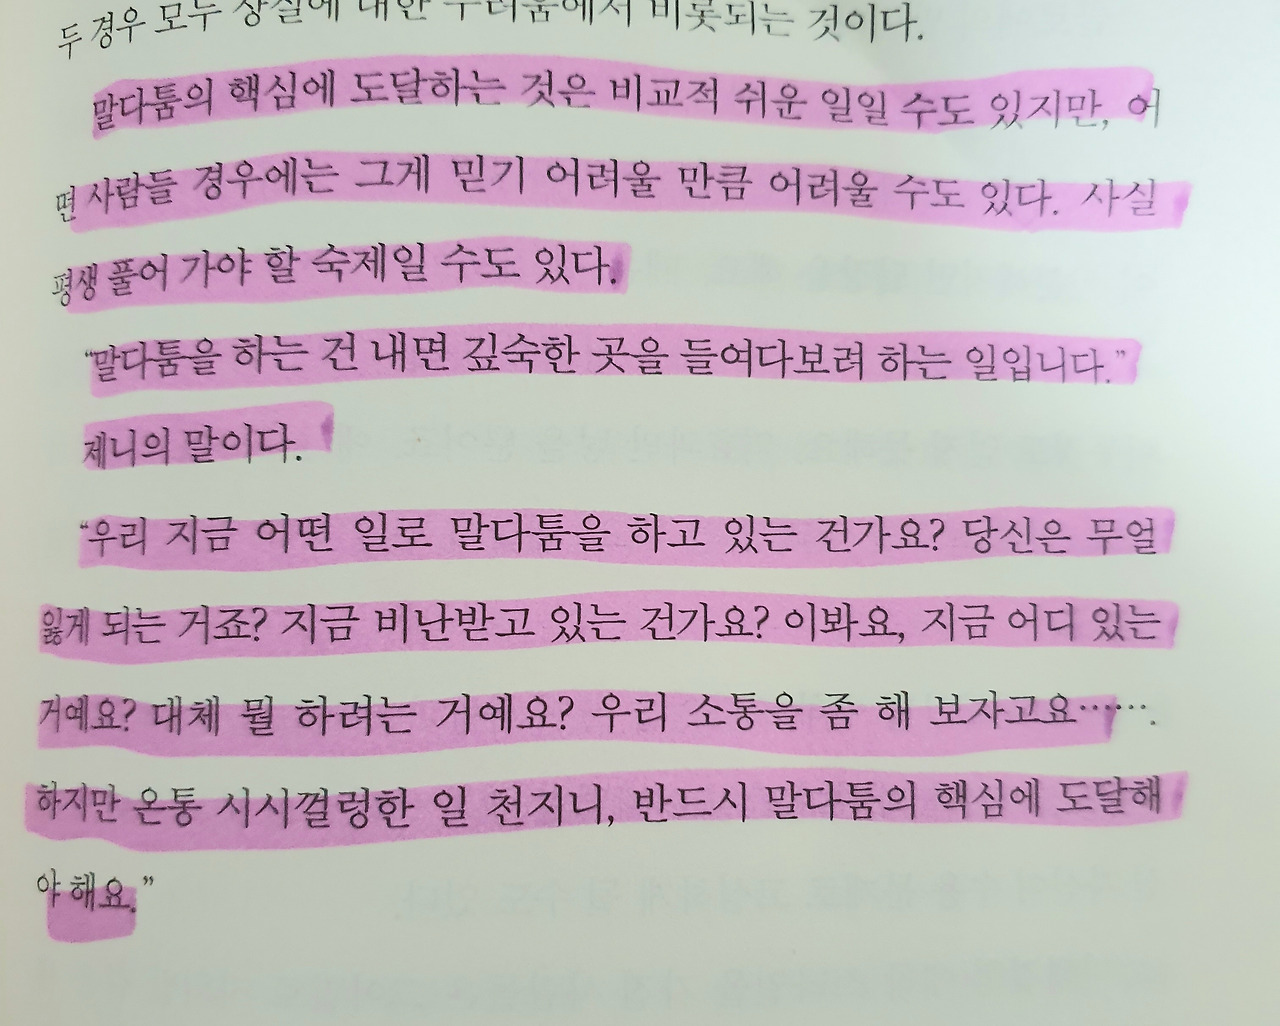 두 경우 모두 상실에 대한 두려움에서 비롯되는 것이다.
말다툼의 핵심에 도달하는 것은 비교적 쉬운 일일 수도 있지만, 어
떤 사람들 경우에는 그게 믿기 어려울 만큼 어려울 수도 있다. 사실
평생 풀어 가야 할 숙제일 수도 있다.
“말다툼을 하는 건 내면 깊숙한 곳을 들여다보려 하는 일입니다.”
제니의 말이다.
“우리 지금 어떤 일로 말다툼을 하고 있는 건가요? 당신은 무얼
잃게 되는 거죠? 지금 비난받고 있는 건가요? 이봐요, 지금 어디 있는
거예요? 대체 뭘 하려는 거예요? 우리 소통을 좀 해 보자고요…….
하지만 온통 시시껄렁한 일 천지니, 반드시 말다툼의 핵심에 도달해
야 해요.”